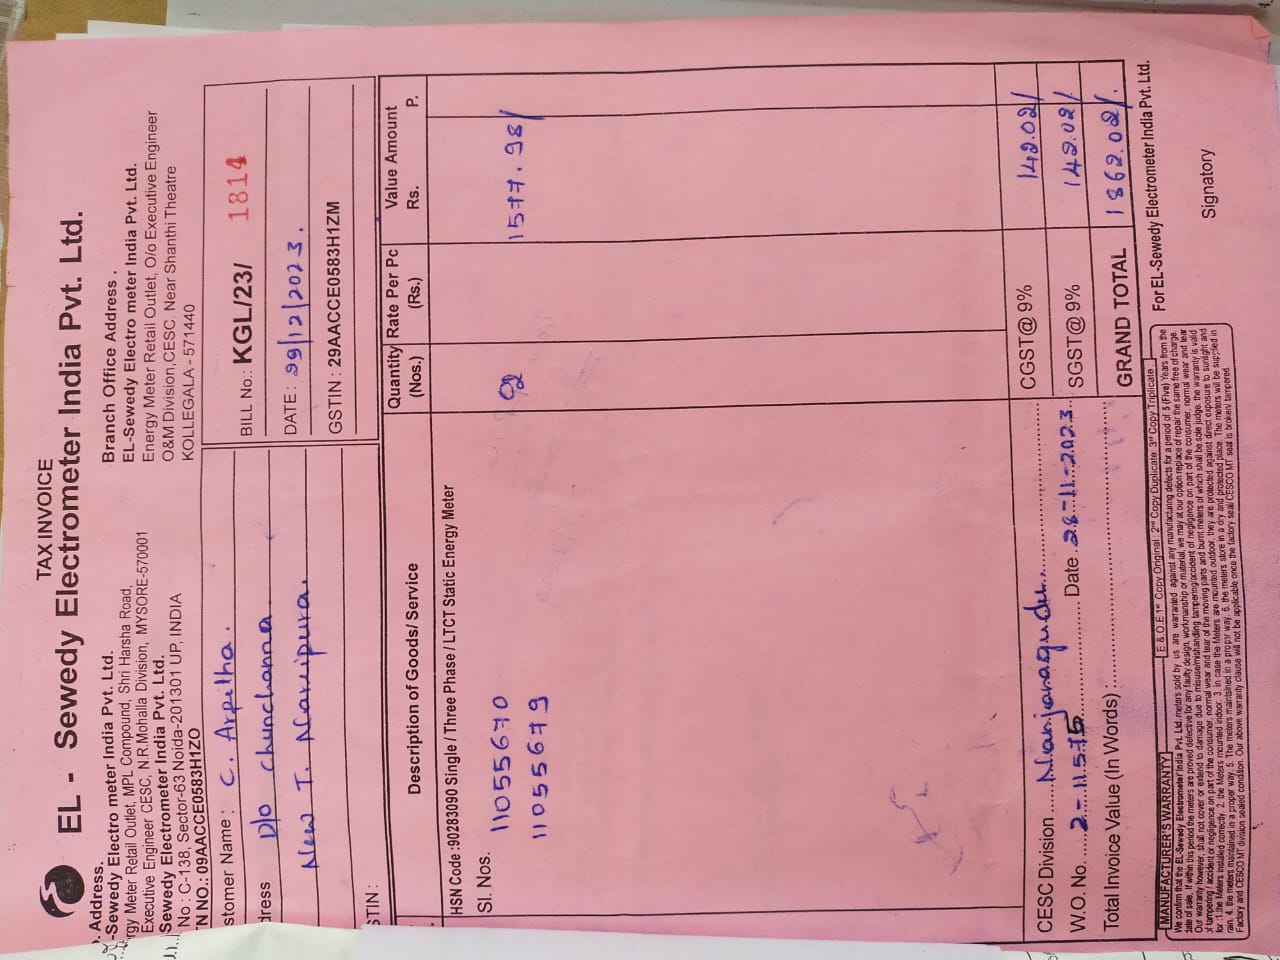 TAX INVOICE
EL - Sewedy Electrometer India Pvt. Ltd.
. Address.
-Sewedy Electro meter India Pvt. Ltd.
rgy Meter Retail Outlet, MPL Compound, Shri Harsha Road,
Executive Engineer CESC, N.R.Mohalla Division, MYSORE-570001
Sewedy Electrometer India Pvt. Ltd.
No : C-138, Sector-63 Noida-201301 UP, INDIA
TN NO.: 09AACCE0583H1ZO
Branch Office Address .
EL-Sewedy Electro meter India Pvt. Ltd.
Energy Meter Retail Outlet, O/o Executive Engineer
O&M Division,CESC. Near Shanthi Theatre
KOLLEGALA - 571440
stomer Name : C. Arpitha.
dress D/o chunchanna
New T. Narsipura.
STIN :
BILL No.: KGL/23/ 1814
DATE : /12/2023.
GSTIN : 29AACCE0583H1ZM
Description of Goods/ Service
Quantity (Nos.)
Rate Per Pc (Rs.)
Value Amount
Rs. P.
HSN Code :90283090 Single / Three Phase / LTCT Static Energy Meter
Sl. Nos. 11055670 02 1577.98/
11055679
CESC Division Nanjanagudu
CGST@ 9% 142.02/
W.O. No. 2-11575 Date 28-11-2023
SGST@ 9% 142.02/.
Total Invoice Value (In Words)
GRAND TOTAL 1862.02/.
E & O.E 1st Copy Original : 2nd Copy Duplicate: 3rd Copy Triplicate
MANUFACTURER'S WARRANTY
We confirm that the EL-Sewedy Electrometer India Pvt. Ltd. meters sold by us are warranted against any manufacturing defects for a period of 5 (Five) Years from the
date of sale. If within this period the meters are proved defective for any faulty design, workmanship or material, we may at our option replace of repair the same free of charge.
Our warranty however, shall not cover or extend to damage due to misuse/mishandling tampering/accident of negligence on part of the consumer, normal wear and tear
of tampering / accident or negligence on part of the consumer, normal wear and tear of the moving parts and burnt meters of which shall be sole judge. the warranty is valid
for :1.the Meters installed correctly. 2. the Meters mounted indoor. 3. in case the Meters are mounted outdoor, they are protected against direct exposure to sunlight and
rain. 4. the meters maintained in a proper way. 5. The meters maintained in a proper way. 6. the meters store in a dry and protected place. The meters will be supplied in
Factory and CESCO MT division sealed condition. Our above warranty clause will not be applicable once the factory seal/ CESCO MT seal is broken/ tampered.
For EL-Sewedy Electrometer India Pvt. Ltd.
Signatory